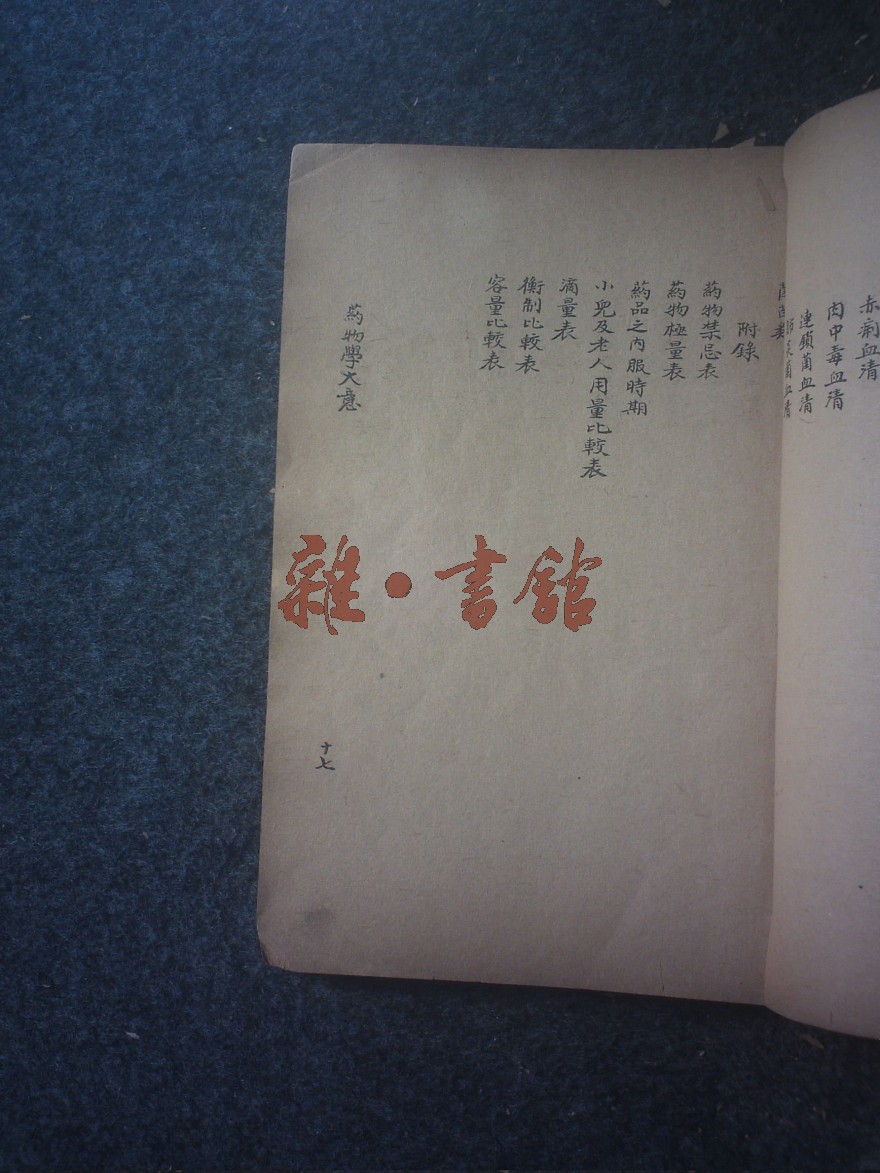 赤痢血清
肉中毒血清
連鎖菌血清
附錄
葯物禁忌表
葯物極量表
葯品之內服時期
小兒及老人用量比較表
滴量表
衡制比較表
容量比較表
葯物學大意
十七
雜·書館